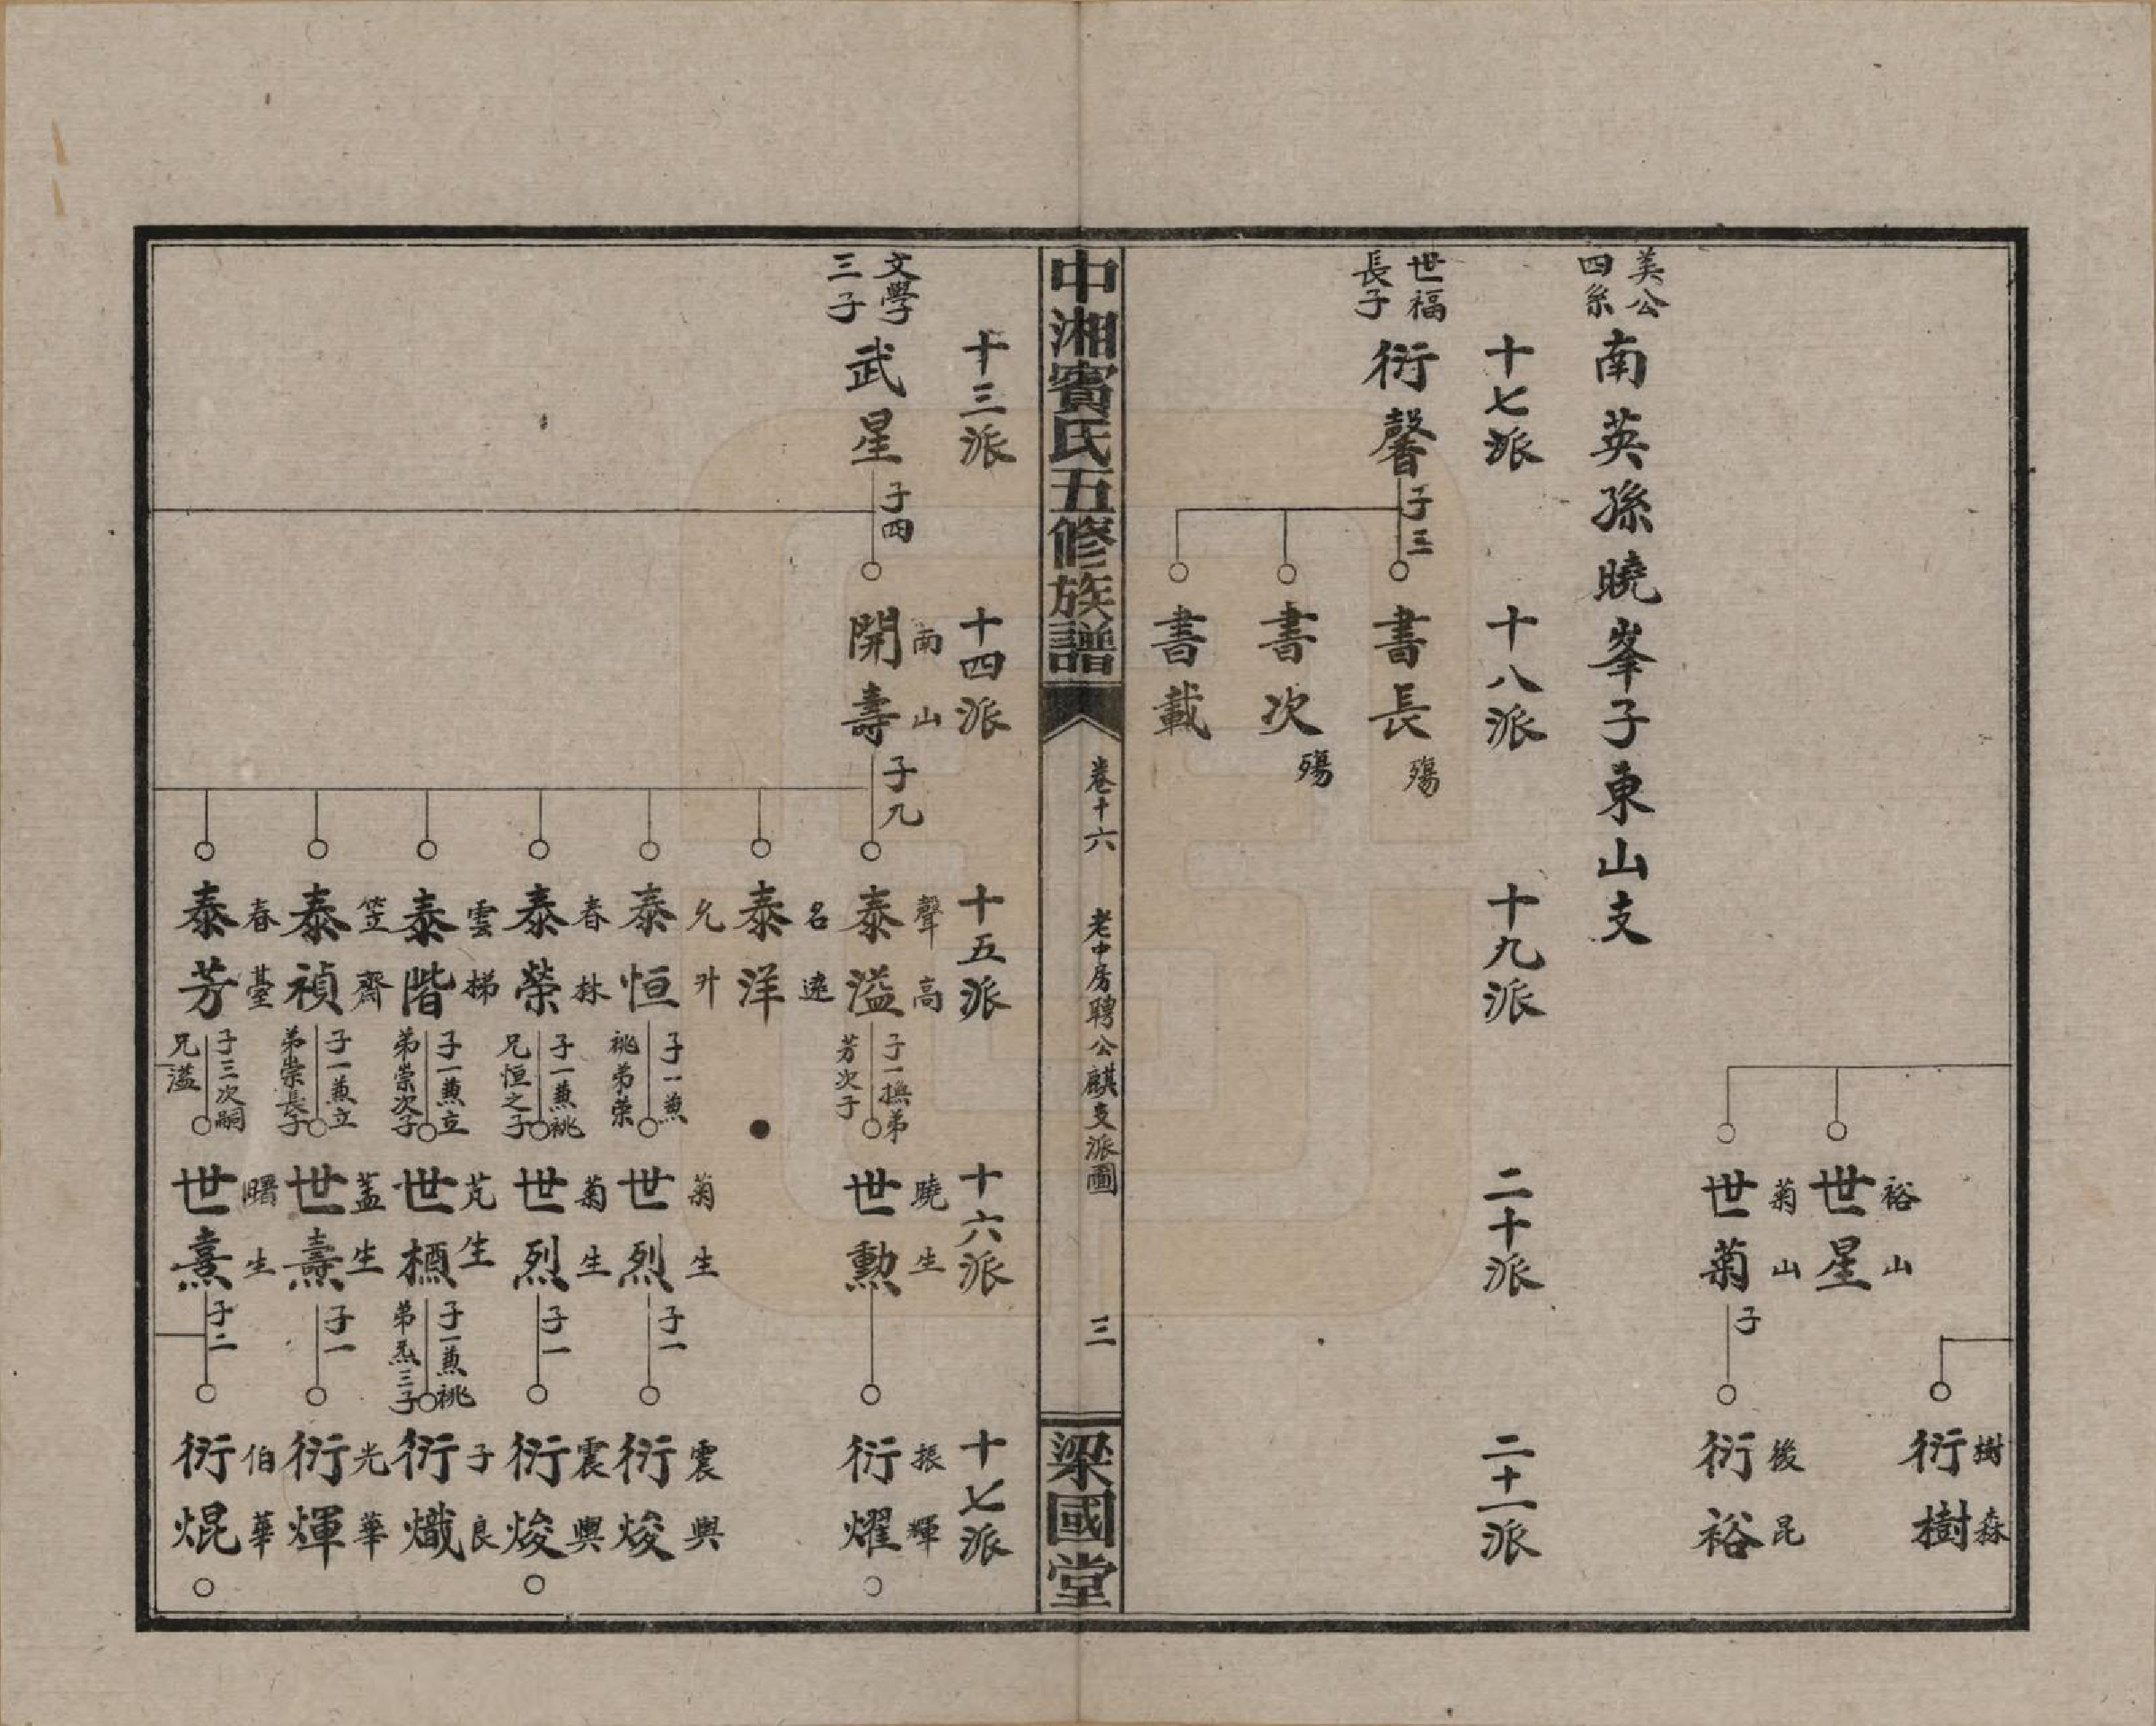 樹森
衍樹
裕山
世星
菊山
世菊
子
後昆
衍裕
美公
四系
南英孫曉峯子東山支
十七派
十八派
十九派
二十派
二十一派
世福
長子
衍馨
子三
書長
殤
書次
殤
書載
中湘賓氏五修族譜
卷十六
老中房聘公麒支派圖
三
梁國堂
十三派
十四派
十五派
十六派
十七派
文學
三子
武星
子四
南山
開壽
子九
聲高
泰溢
子一撫弟
芳次子
曉生
世勳
振輝
衍燿
名達
泰洋
允升
泰恒
子一兼
祧弟荣
菊生
世烈
子一
震興
衍焌
春林
泰榮
子一兼祧
兄恒之子
菊生
世烈
子一
震興
衍焌
雲梯
泰階
子一兼立
弟崇次子
芃生
世槱
子一兼祧
弟炁三子
子良
衍熾
笠齊
泰禎
子一兼立
弟崇長子
蓋生
世燾
子一
光華
衍煇
春臺
泰芳
子三次嗣
兄溢
曙生
世熹
子二
伯華
衍焜